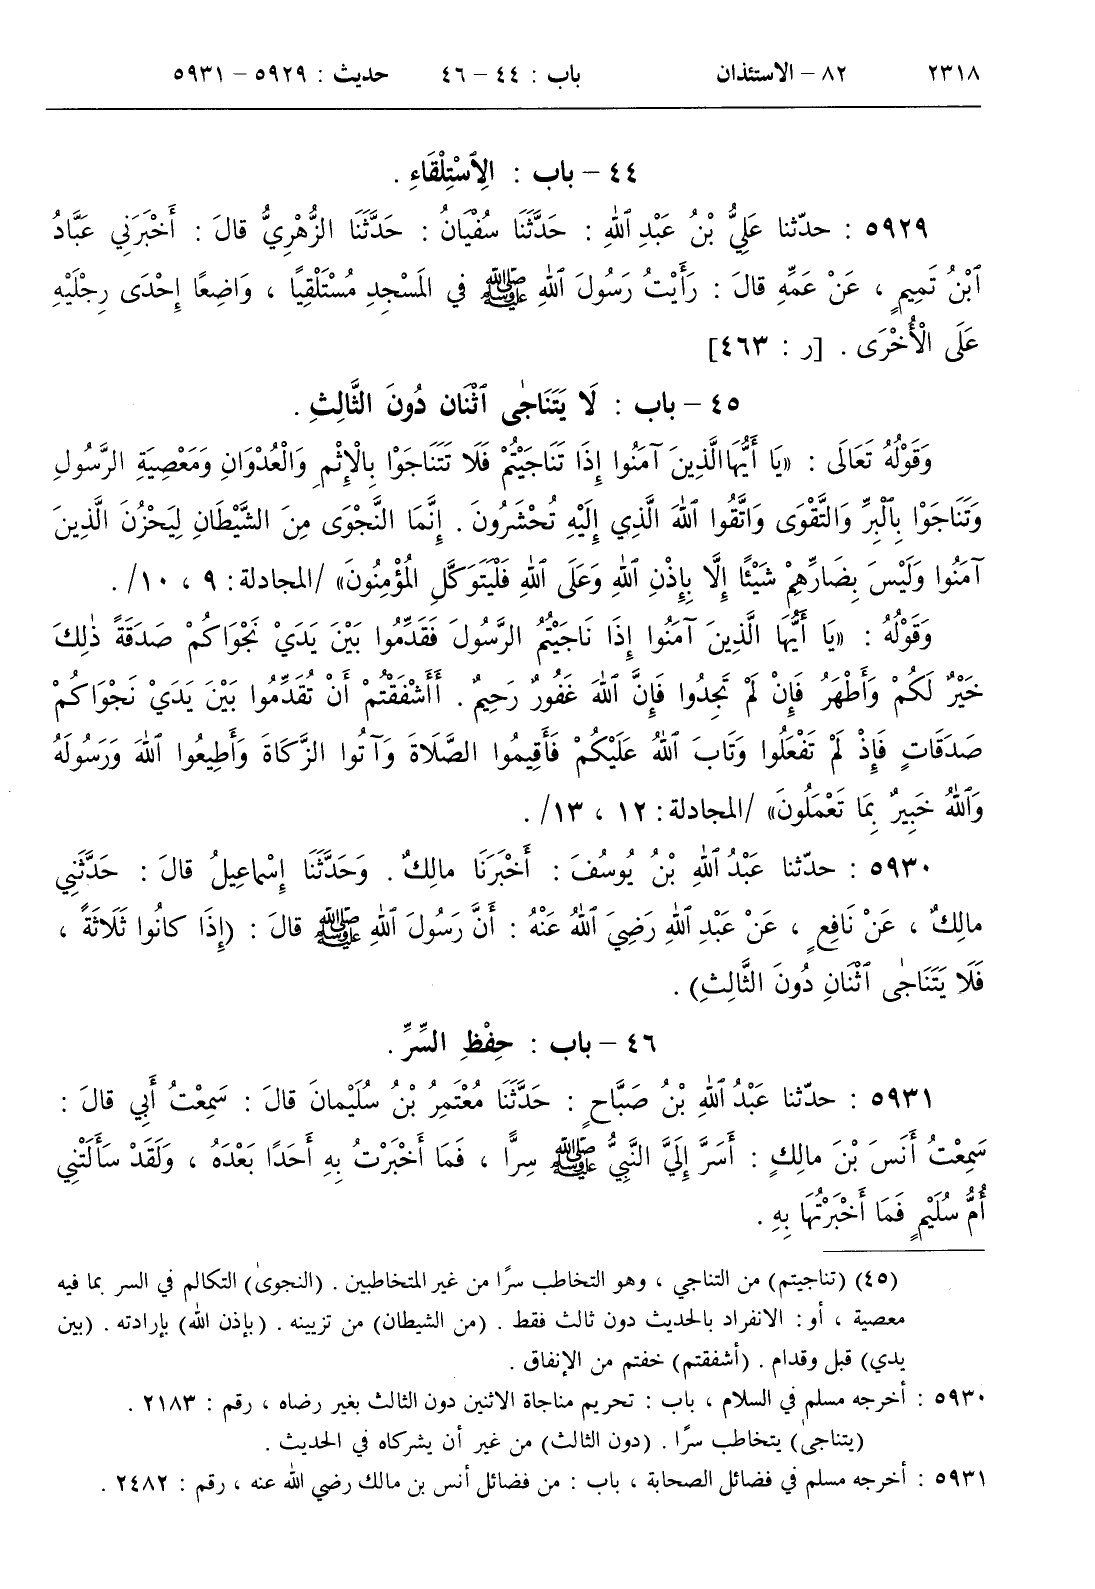 ٢٣١٨ ٨٢ – الاستئذان باب : ٤٤ – ٤٦ حديث : ٥٩٢٩ – ٥٩٣١
٤٤ – باب : الِٱسْتِلْقَاءِ .
٥٩٢٩ : حدّثنا عَلِيُّ بْنُ عَبْدِ ٱللهِ : حَدَّثَنَا سُفْيَانُ : حَدَّثَنَا الزُّهْرِيُّ قالَ : أَخْبَرَنِي عَبَّادُ
ٱبْنُ تَمِيمٍ ، عَنْ عَمِّهِ قالَ : رَأَيْتُ رَسُولَ ٱللهِ ﷺ في المَسْجِدِ مُسْتَلْقِيًا ، وَاضِعًا إِحْدَى رِجْلَيْهِ
عَلَى الْأُخْرَى . [ر : ٤٦٣]
٤٥ – باب : لَا يَتَنَاجٰى ٱثْنَان دُونَ الثَّالِثِ .
وَقَوْلُهُ تَعَالَى : «يَا أَيُّهَا الَّذِينَ آمَنُوا إِذَا تَنَاجَيْتُمْ فَلَا تَتَنَاجَوْا بِالْإِثْمِ وَالْعُدْوَانِ وَمَعْصِيَةِ الرَّسُولِ
وَتَنَاجَوْا بِالْبِرِّ وَالتَّقْوَى وَاتَّقُوا ٱللهَ الَّذِي إِلَيْهِ تُحْشَرُونَ . إِنَّمَا النَّجْوَى مِنَ الشَّيْطَانِ لِيَحْزُنَ الَّذِينَ
آمَنُوا وَلَيْسَ بِضَارِّهِمْ شَيْئًا إِلَّا بِإِذْنِ ٱللهِ وَعَلَى ٱللهِ فَلْيَتَوَكَّلِ الْمُؤْمِنُونَ» /المجادلة: ٩ ، ١٠/ .
وَقَوْلُهُ : «يَا أَيُّهَا الَّذِينَ آمَنُوا إِذَا نَاجَيْتُمُ الرَّسُولَ فَقَدِّمُوا بَيْنَ يَدَيْ نَجْوَاكُمْ صَدَقَةً ذٰلِكَ
خَيْرٌ لَكُمْ وَأَطْهَرُ فَإِنْ لَمْ تَجِدُوا فَإِنَّ ٱللهَ غَفُورٌ رَحِيمٌ . أَأَشْفَقْتُمْ أَنْ تُقَدِّمُوا بَيْنَ يَدَيْ نَجْوَاكُمْ
صَدَقَاتٍ فَإِذْ لَمْ تَفْعَلُوا وَتَابَ ٱللهُ عَلَيْكُمْ فَأَقِيمُوا الصَّلَاةَ وَآتُوا الزَّكَاةَ وَأَطِيعُوا ٱللهَ وَرَسُولَهُ
وَٱللهُ خَبِيرٌ بِمَا تَعْمَلُونَ» /المجادلة: ١٢ ، ١٣/ .
٥٩٣٠ : حدّثنا عَبْدُ ٱللهِ بْنُ يُوسُفَ : أَخْبَرَنَا مالِكٌ . وَحَدَّثَنَا إِسْماعِيلُ قالَ : حَدَّثَنِي
مالِكٌ ، عَنْ نَافِعٍ ، عَنْ عَبْدِ ٱللهِ رَضِيَ ٱللهُ عَنْهُ : أَنَّ رَسُولَ ٱللهِ ﷺ قالَ : (إِذَا كانُوا ثَلَاثَةً ،
فَلَا يَتَنَاجٰى ٱثْنَانِ دُونَ الثَّالِثِ) .
٤٦ – باب : حِفْظِ السِّرِّ .
٥٩٣١ : حدّثنا عَبْدُ ٱللهِ بْنُ صَبَّاحٍ : حَدَّثَنَا مُعْتَمِرُ بْنُ سُلَيْمانَ قالَ : سَمِعْتُ أَبِي قالَ :
سَمِعْتُ أَنَسَ بْنَ مالِكٍ : أَسَرَّ إِلَيَّ النَّبِيُّ ﷺ سِرًّا ، فَمَا أَخْبَرْتُ بِهِ أَحَدًا بَعْدَهُ ، وَلَقَدْ سَأَلَتْنِي
أُمُّ سُلَيْمٍ فَمَا أَخْبَرْتُهَا بِهِ .
(٤٥) (تناجيتم) من التناجي ، وهو التخاطب سرًا من غير المتخاطبين . (النجوىٰ) التكالم في السر بما فيه
معصية ، أو : الانفراد بالحديث دون ثالث فقط . (من الشيطان) من تزيينه . (بإذن الله) بإرادته . (بين
يدي) قبل وقدام . (أشفقتم) خفتم من الإنفاق .
٥٩٣٠ : أخرجه مسلم في السلام ، باب : تحريم مناجاة الاثنين دون الثالث بغير رضاه ، رقم : ٢١٨٣ .
(يتناجىٰ) يتخاطب سرًا . (دون الثالث) من غير أن يشركاه في الحديث .
٥٩٣١ : أخرجه مسلم في فضائل الصحابة ، باب : من فضائل أنس بن مالك رضي الله عنه ، رقم : ٢٤٨٢ .